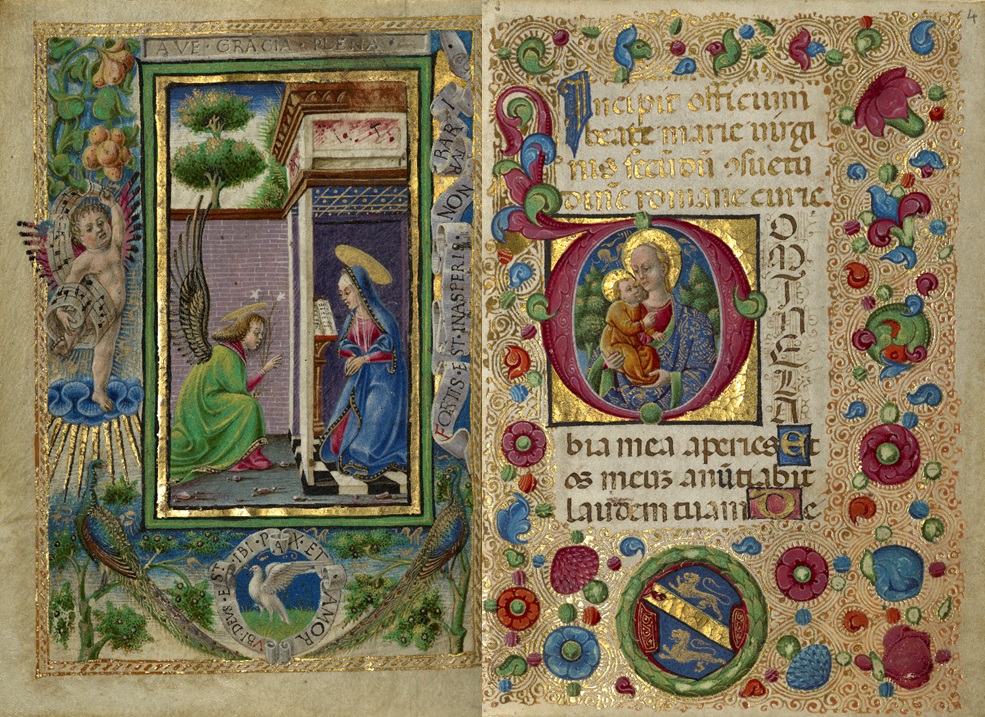 AVE · GRACIA · PLENA ·
FORTIS · EST · INASPERIS · NON
VBI · DEVS · EST · IBI · PAX · ET · AMOR
4
Incipit officium
beate marie uirgi
nis scđm ꝯsuetu
dine romane curie.
DOMINE LA
bia mea aperies Et
os meuz anūtiabit
laudem tuam De